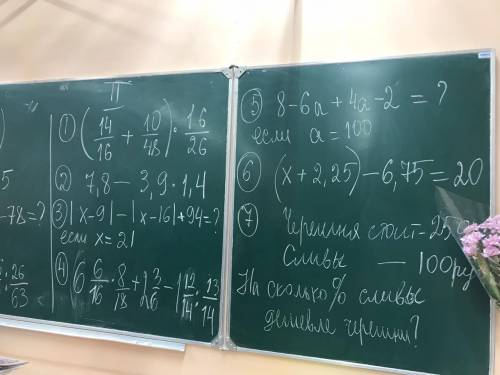 5
-78=?
26/63
II
① (14/16 + 10/48) · 16/26
② 7,8 - 3,9 · 1,4
③ |x-9| - |x-16| + 94 = ?
если x=21
④ 6 6/16 · 8/18 +
⑤ 8-6a+4a-2 = ?
если a=100
⑥ (x+2,25) - 6,75 = 20
⑦ Черешня стоит -
Сливы — 100ру
На сколько % сливы
дешевле черешни?